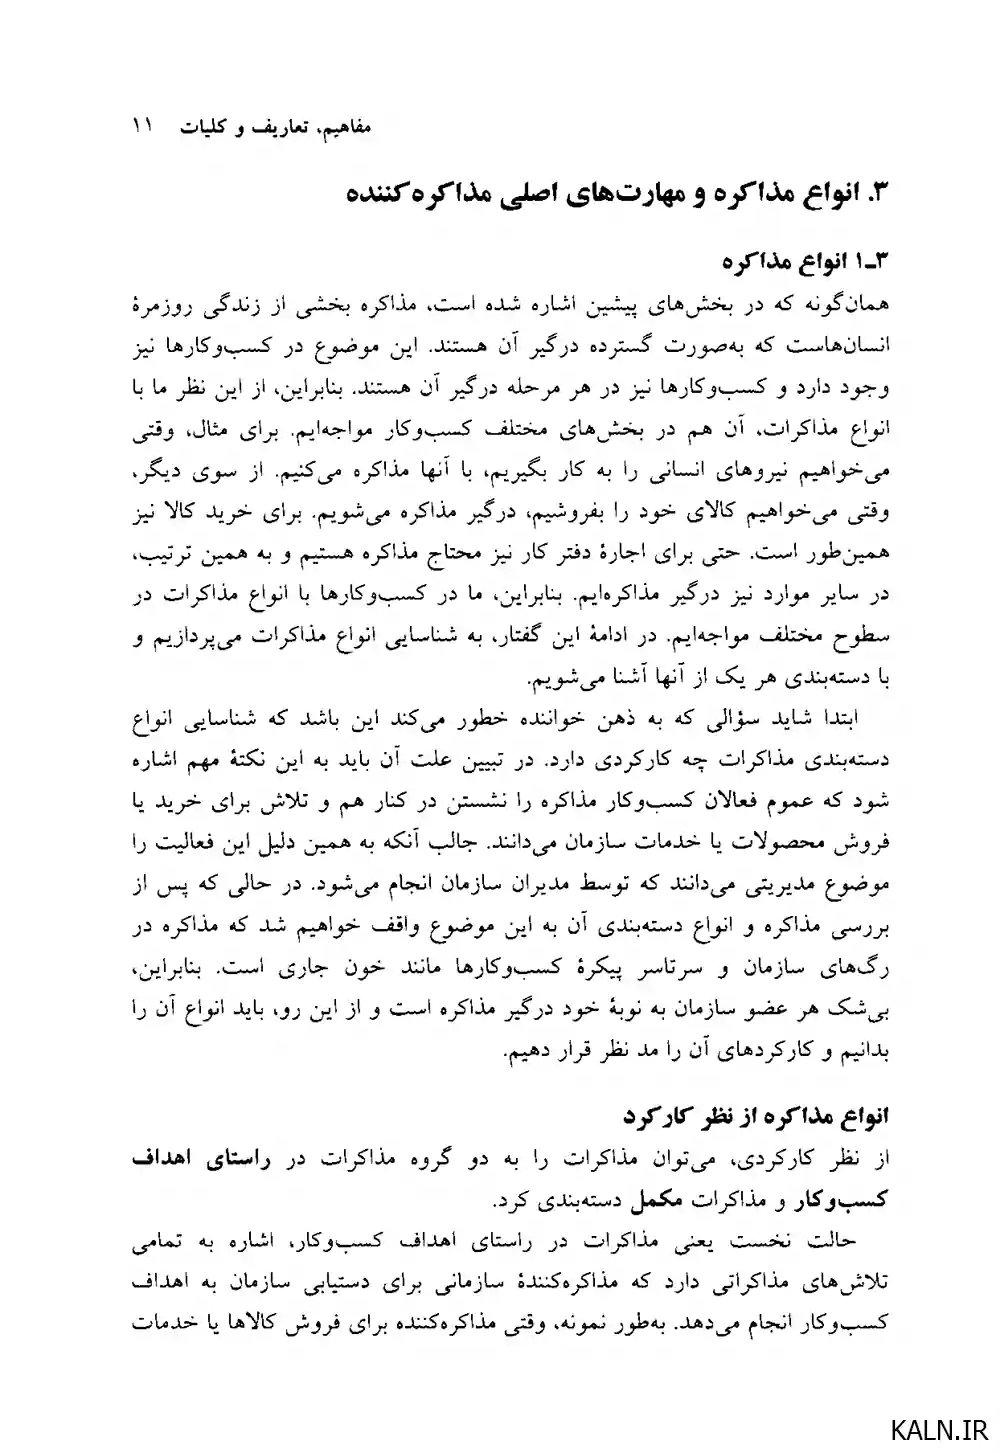 مفاهیم، تعاریف و کلیات ۱۱
۳. انواع مذاکره و مهارت‌های اصلی مذاکره‌کننده
۳ـ۱ انواع مذاکره
همان‌گونه که در بخش‌های پیشین اشاره شده است، مذاکره بخشی از زندگی روزمرهٔ
انسان‌هاست که به‌صورت گسترده درگیر آن هستند. این موضوع در کسب‌وکارها نیز
وجود دارد و کسب‌وکارها نیز در هر مرحله درگیر آن هستند. بنابراین، از این نظر ما با
انواع مذاکرات، آن هم در بخش‌های مختلف کسب‌وکار مواجه‌ایم. برای مثال، وقتی
می‌خواهیم نیروهای انسانی را به کار بگیریم، با آنها مذاکره می‌کنیم. از سوی دیگر،
وقتی می‌خواهیم کالای خود را بفروشیم، درگیر مذاکره می‌شویم. برای خرید کالا نیز
همین‌طور است. حتی برای اجارهٔ دفتر کار نیز محتاج مذاکره هستیم و به همین ترتیب،
در سایر موارد نیز درگیر مذاکره‌ایم. بنابراین، ما در کسب‌وکارها با انواع مذاکرات در
سطوح مختلف مواجه‌ایم. در ادامهٔ این گفتار، به شناسایی انواع مذاکرات می‌پردازیم و
با دسته‌بندی هر یک از آنها آشنا می‌شویم.
ابتدا شاید سؤالی که به ذهن خواننده خطور می‌کند این باشد که شناسایی انواع
دسته‌بندی مذاکرات چه کارکردی دارد. در تبیین علت آن باید به این نکتهٔ مهم اشاره
شود که عموم فعالان کسب‌وکار مذاکره را نشستن در کنار هم و تلاش برای خرید یا
فروش محصولات یا خدمات سازمان می‌دانند. جالب آنکه به همین دلیل این فعالیت را
موضوع مدیریتی می‌دانند که توسط مدیران سازمان انجام می‌شود. در حالی که پس از
بررسی مذاکره و انواع دسته‌بندی آن به این موضوع واقف خواهیم شد که مذاکره در
رگ‌های سازمان و سرتاسر پیکرهٔ کسب‌وکارها مانند خون جاری است. بنابراین،
بی‌شک هر عضو سازمان به نوبهٔ خود درگیر مذاکره است و از این رو، باید انواع آن را
بدانیم و کارکردهای آن را مد نظر قرار دهیم.
انواع مذاکره از نظر کارکرد
از نظر کارکردی، می‌توان مذاکرات را به دو گروه مذاکرات در راستای اهداف
کسب‌وکار و مذاکرات مکمل دسته‌بندی کرد.
حالت نخست یعنی مذاکرات در راستای اهداف کسب‌وکار، اشاره به تمامی
تلاش‌های مذاکراتی دارد که مذاکره‌کنندهٔ سازمانی برای دستیابی سازمان به اهداف
کسب‌وکار انجام می‌دهد. به‌طور نمونه، وقتی مذاکره‌کننده برای فروش کالاها یا خدمات
KALN.IR